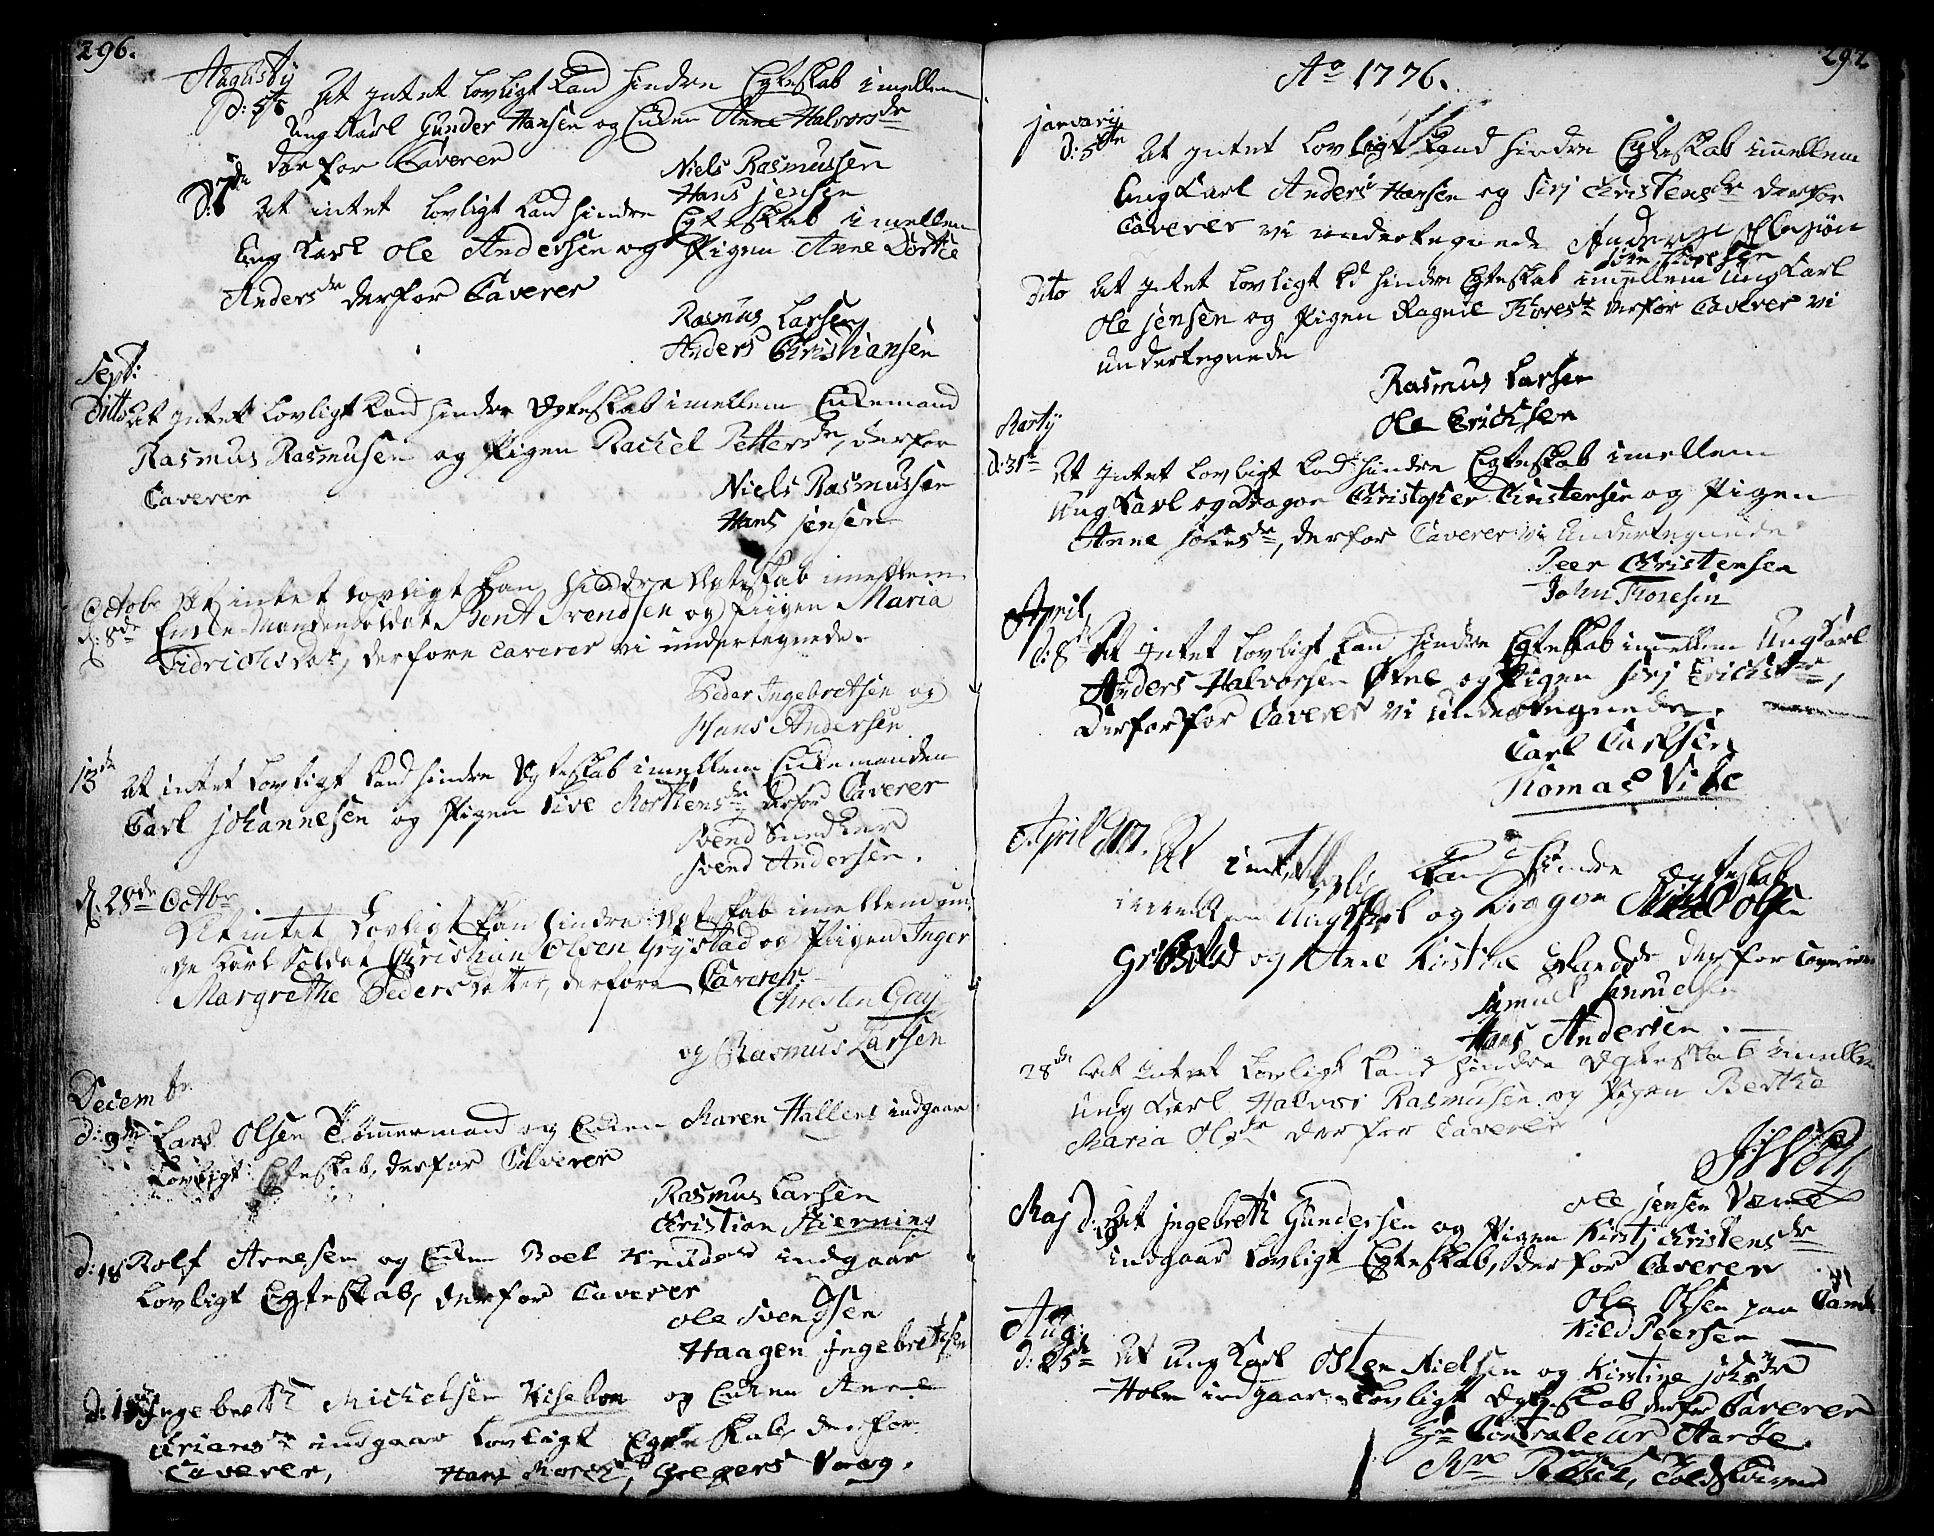 296.
Augusty
d: 5te At intet lovligt kand hindre Egteskab imellem
Ung Karl Gunder Hansen og Enken Anne Halvorsdr
derfor Caverer
Niels Rasmussen
Hans Jensen
At intet lovligt kand hindre Egteskab imellem
Ung Karl Ole Andersen og Pigen Anne Dorthe
Andersdr derfor Caverer
Rasmus Larsen
Anders Christiansen
Sept:
Ditto At intet lovligt kand hindre Egteskab imellem Enkemand
Rasmus Rasmusen og Pigen Rachel Pettersdr, derfor
Caverer
Niels Rasmussen
Hans Jensen
Octobr At intet lovligt kan hindre Egteskab imellem
d: 8de Enke-Manden Soldat Bent Svendsen og Piigen Maria
Didrichsdat, derfore caverer vi undertegnede.
Peder Ingebretsen og
Hans Andersen
13de At intet lovligt kand hindre Egteskab imellem Enkemanden
Carl Johannesen og Pigen Live Mortensdr derfor Caverer
Svend Snedker
Svend Andersen.
d. 28de Octbr
At intet Lovligt kan hindre Egteskab imellem den un-
ge Karl Soldat Christian Olsen Grystad og Piigen Inger
Margrethe Peders datter, derfore Caverer.
Christen Gay
og Rasmus Larsen
Decembr
d: 9de Lars Olsen Tømmermand og Enken Maren Hallens indgaar
Lovligt Egteskab, derfor Caverer
Rasmus Larsen
Christian Stierning
d: 18 Rolf Arnesen og Enken Boel Knudsdr indgaar
Lovligt Egteskab, derfor Caverer
Ole Svendsen
Haagen Ingebretsen
Ingebreth Michelsen og Enken Anne
Ariansdr indgaar Lovligt Egteskab, derfor
Caverer, Hans Morch, Gregers Vaag.
292
Ao 1776.
January
d: 5te At intet lovligt kand hindre Egteskab imellem
Ung Karl Anders Hansen og Sirj Christensdr derfor
Caverer vi undertegnede
Dito At intet lovligt kd hindre Egteskab imellem Ung Karl
Ole Jensen og Pigen Ragnil Thoresdr derfor Caverer vi
undertegnede
Rasmus Larsen
Ole Erichsen
Marty
d: 31te At intet lovligt kand hindre Egteskab imellem
Ung Karl og Dragon Christopher Christensen og Pigen
Anne Johnsdr, derfor Caverer vi Undertegnede
Peer Christensen
John Thoresen
April,
d: 8de At intet lovligt kand hindre Egteskab imellem Ung Karl
Anders Halvorsen og Pigen Sirj Erichsdr,
derforfor Caverer vi undertegnede.
Carl Carlsen
Thomas Vibe
April d 17. At intet lovlig kand hindre Egteskab
imellem Ung Karl og Dragon Niels Olsen
og Anne Kirstine derfor Caverer
Samuel Samuelsen
Hans Andersen.
28de At intet Lovligt kand hindre Egteskab imellem
Ung Karl Halvor Rasmusen og Pigen Berthe
Maria Olsdr derfor Caverer
Ole Jensen Værne
Maj d: At Ingebreth Gundersen og Pigen Kirstj Christensdr
indgaar Lovligt Egteskab, derfor Caverer
Ole Olsen paa
Kield Peersen
Aug:
d: 25de At Ung Karl Osten Nielsen og Kirstine Johsdr
Holm indgaar Lovligt Egteskab derfor Caverer
Hr Controleur Aarøe.
Toldskriver